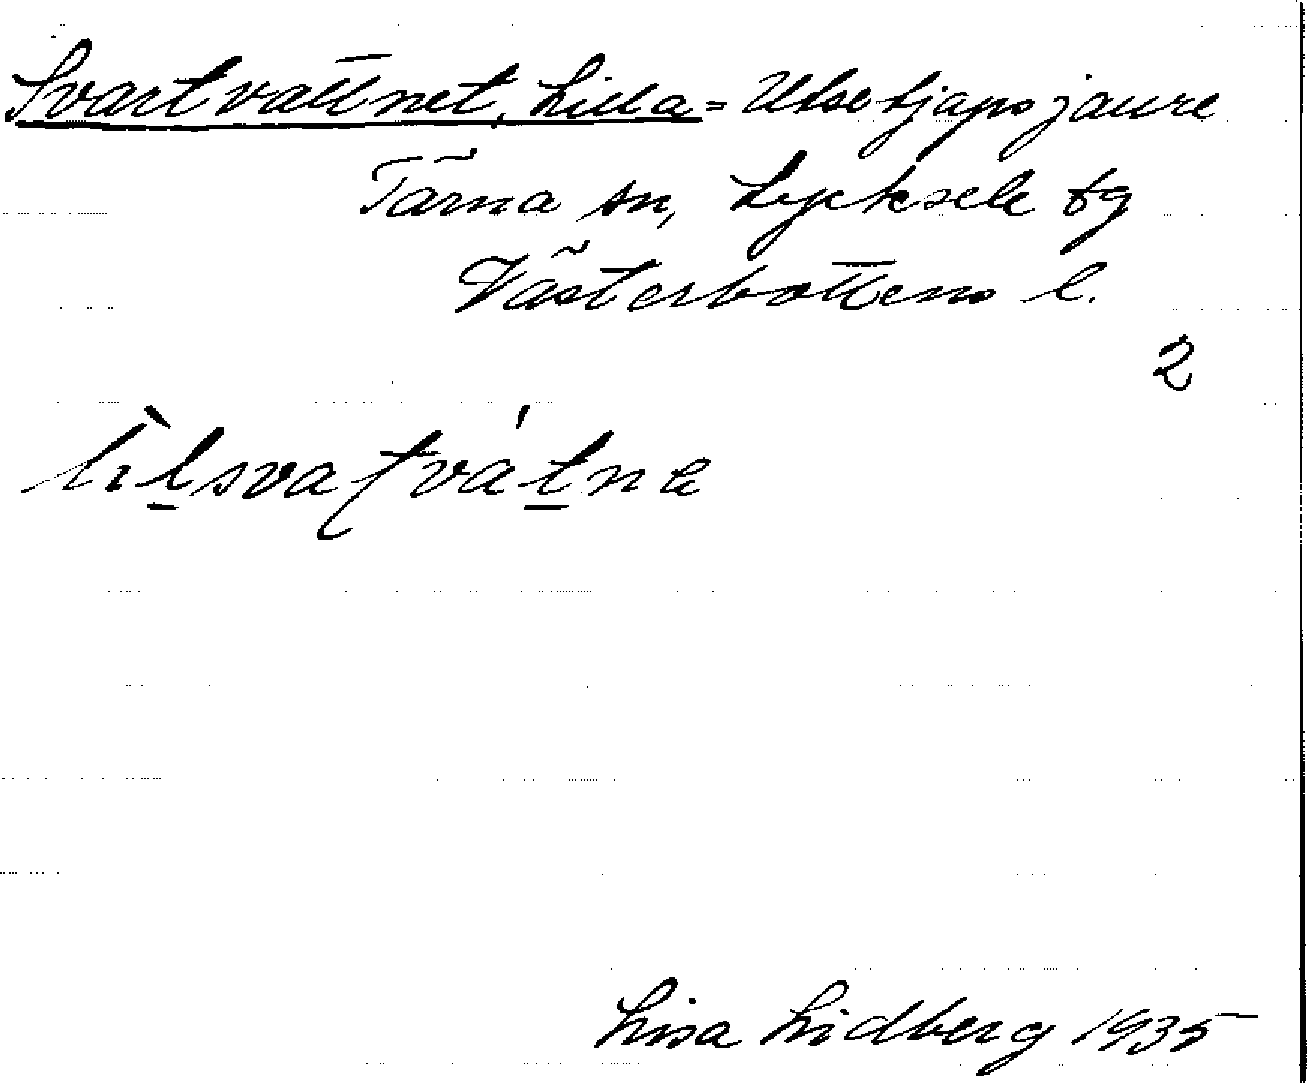 Svartvattnet, Lilla = Utsetjaps jaure
Tärna sn, Lycksele tg
Västerbottens l.
2
lìlsvaʈvátnɐ
Lisa Lidberg 1935